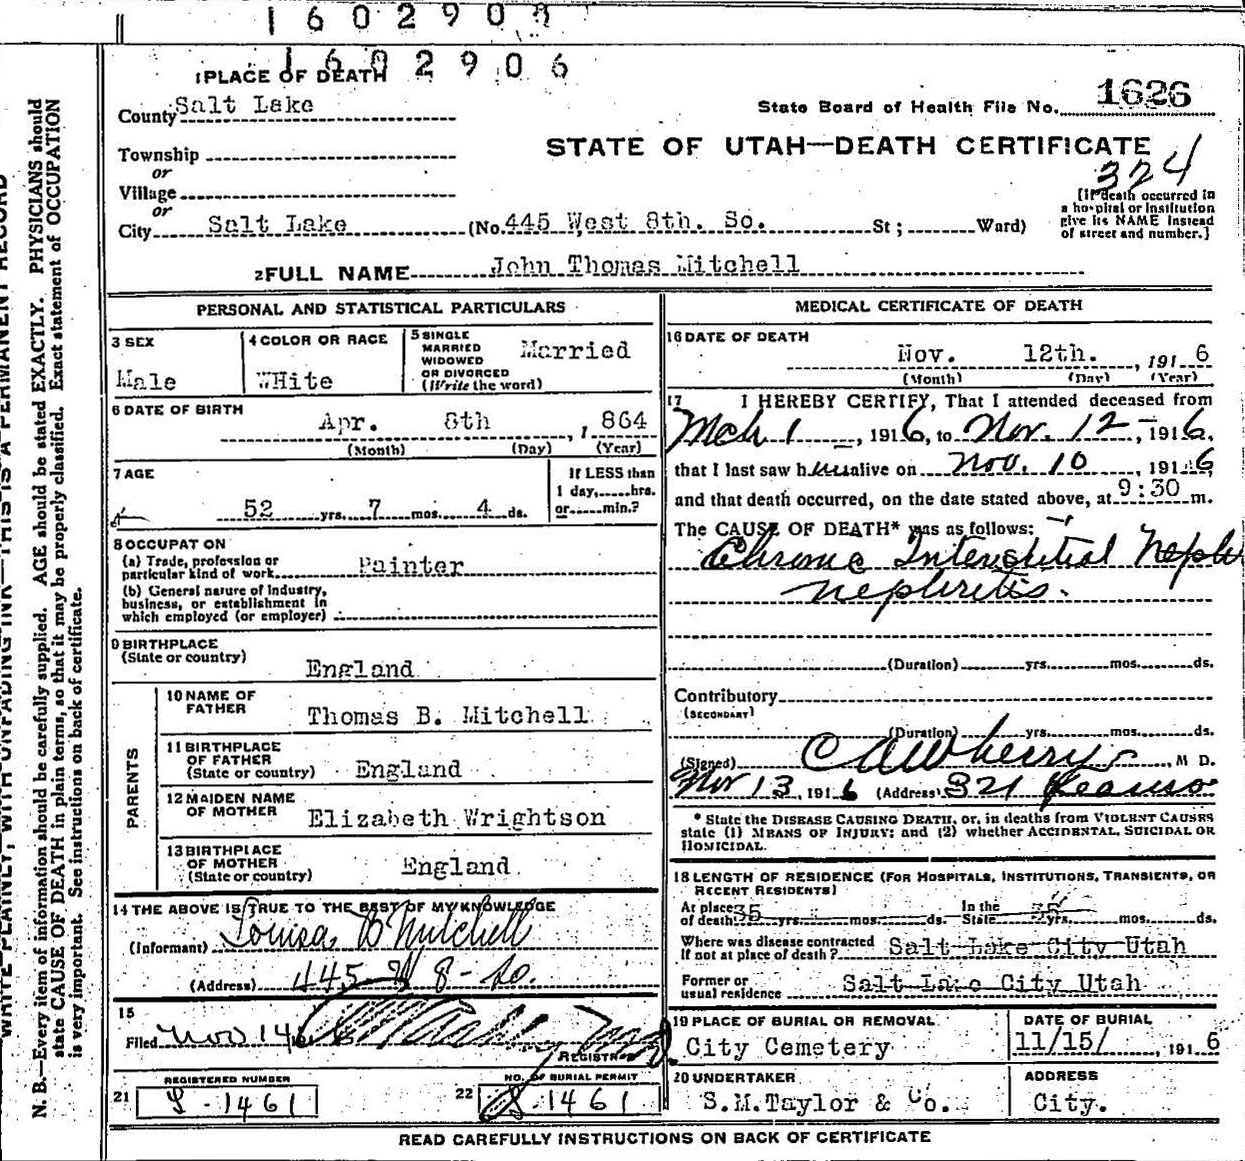 1602908
1602906
1 PLACE OF DEATH
County Salt Lake
State Board of Health File No. 1626
Township
STATE OF UTAH—DEATH CERTIFICATE
324
or
Village
or
City Salt Lake (No. 445 West 8th. So. St; Ward)
[If death occurred in
a hospital or institution
give its NAME instead
of street and number.]
2 FULL NAME John Thomas Mitchell
PERSONAL AND STATISTICAL PARTICULARS
3 SEX
Male
4 COLOR OR RACE
WHite
5 SINGLE
MARRIED
WIDOWED
OR DIVORCED
(Write the word)
Married
6 DATE OF BIRTH
Apr. 8th , 1864
(Month) (Day) (Year)
7 AGE
52 yrs. 7 mos. 4 ds.
If LESS than
1 day, hrs.
or min.?
8 OCCUPATION
(a) Trade, profession or
particular kind of work Painter
(b) General nature of Industry,
business, or establishment in
which employed (or employer)
9 BIRTHPLACE
(State or country) England
PARENTS
10 NAME OF
FATHER Thomas B. Mitchell
11 BIRTHPLACE
OF FATHER
(State or country) England
12 MAIDEN NAME
OF MOTHER Elizabeth Wrightson
13 BIRTHPLACE
OF MOTHER
(State or country) England
14 THE ABOVE IS TRUE TO THE BEST OF MY KNOWLEDGE
(Informant) Louisa B Mitchell
(Address) 445 W 8- So.
15
Filed Nov 14 6
REGISTRAR
21 REGISTERED NUMBER
S-1461
22 NO. OF BURIAL PERMIT
S-1461
MEDICAL CERTIFICATE OF DEATH
16 DATE OF DEATH
Nov. 12th. , 191 6
(Month) (Day) (Year)
17 I HEREBY CERTIFY, That I attended deceased from
Mch 1 , 1916, to Nov. 12 , 1916,
that I last saw him alive on Nov. 10 , 1916
and that death occurred, on the date stated above, at 9:30 m.
The CAUSE OF DEATH* was as follows:
Chronic Interstitial Neph
nephritis.
(Duration) yrs. mos. ds.
Contributory
(SECONDARY)
(Duration) yrs. mos. ds.
(Signed) C A Wherry , M D.
Nov 13, 1916 (Address) 321 Kearns
* State the DISEASE CAUSING DEATH, or, in deaths from VIOLENT CAUSES
state (1) MEANS OF INJURY; and (2) whether ACCIDENTAL, SUICIDAL OR
HOMICIDAL.
18 LENGTH OF RESIDENCE (FOR HOSPITALS, INSTITUTIONS, TRANSIENTS, OR
RECENT RESIDENTS)
At place
of death 35 yrs. mos. ds.
In the
State 35 yrs. mos. ds.
Where was disease contracted
If not at place of death? Salt Lake City Utah
Former or
usual residence Salt Lake City Utah
19 PLACE OF BURIAL OR REMOVAL
City Cemetery
DATE OF BURIAL
11/15/ , 191 6
20 UNDERTAKER
S.M.Taylor & Co.
ADDRESS
City.
READ CAREFULLY INSTRUCTIONS ON BACK OF CERTIFICATE
WRITE PLAINLY, WITH UNFADING INK—THIS IS A PERMANENT RECORD
N. B.—Every item of information should be carefully supplied. AGE should be stated EXACTLY. PHYSICIANS should
state CAUSE OF DEATH in plain terms, so that it may be properly classified. Exact statement of OCCUPATION
is very important. See instructions on back of certificate.